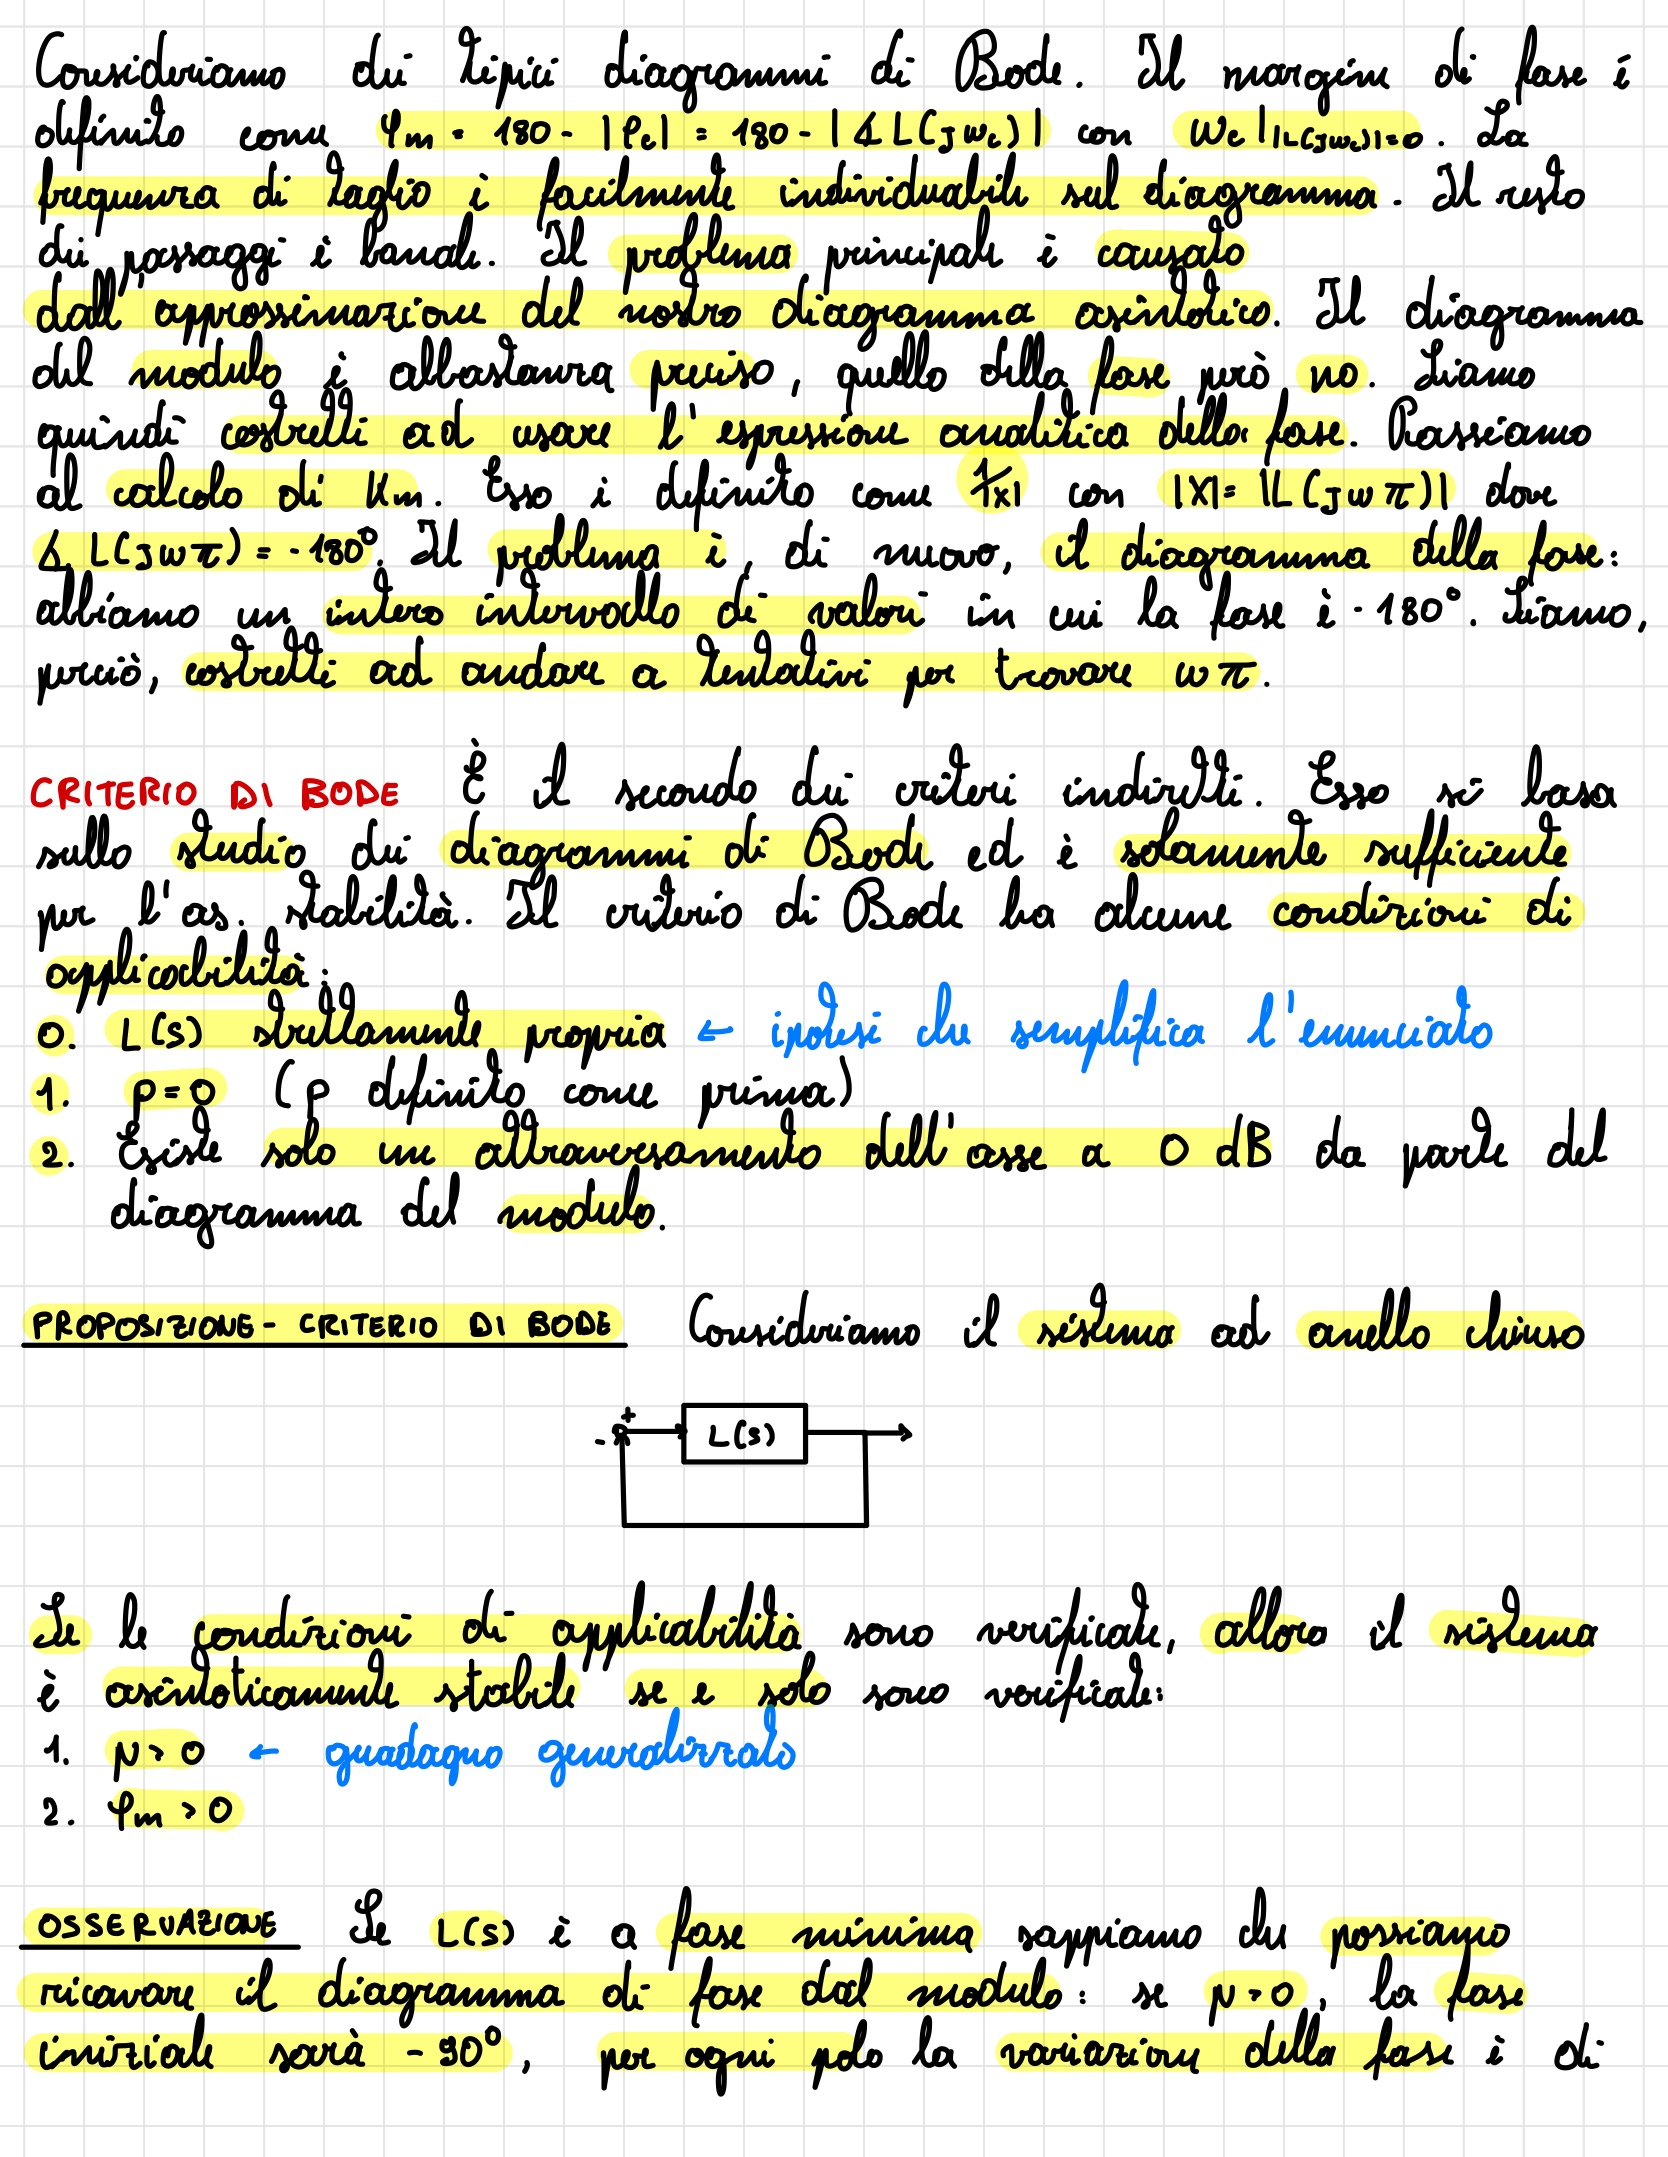 Consideriamo dei tipici diagrammi di Bode. Il margine di fase è
definito come φm = 180 - |φc| = 180 - |∡ L(jωc)| con ωc | |L(jωc)|=0. La
frequenza di taglio è facilmente individuabile sul diagramma. Il resto
dei passaggi è banale. Il problema principale è causato
dall'approssimazione del nostro diagramma asintotico. Il diagramma
del modulo è abbastanza preciso, quello della fase però no. Siamo
quindi costretti ad usare l'espressione analitica della fase. Passiamo
al calcolo di Km. Esso è definito come 1/|x| con |X| = |L(jωπ)| dove
∡ L(jωπ) = -180°. Il problema è, di nuovo, il diagramma della fase:
abbiamo un intero intervallo di valori in cui la fase è -180°. Siamo,
perciò, costretti ad andare a tentativi per trovare ωπ.
CRITERIO DI BODE È il secondo dei criteri indiretti. Esso si basa
sullo studio dei diagrammi di Bode ed è solamente sufficiente
per l'as. stabilità. Il criterio di Bode ha alcune condizioni di
applicabilità:
0. L(s) strettamente propria ← ipotesi che semplifica l'enunciato
1. P=0 (P definito come prima)
2. Esiste solo un attraversamento dell'asse a 0 dB da parte del
diagramma del modulo.
PROPOSIZIONE - CRITERIO DI BODE Consideriamo il sistema ad anello chiuso
+
- L(s)
Se le condizioni di applicabilità sono verificate, allora il sistema
è asintoticamente stabile se e solo sono verificate:
1. μ > 0 ← guadagno generalizzato
2. φm > 0
OSSERVAZIONE Se L(s) è a fase minima sappiamo che possiamo
ricavare il diagramma di fase dal modulo: se μ > 0, la fase
iniziale sarà -90°, per ogni polo la variazione della fase è di